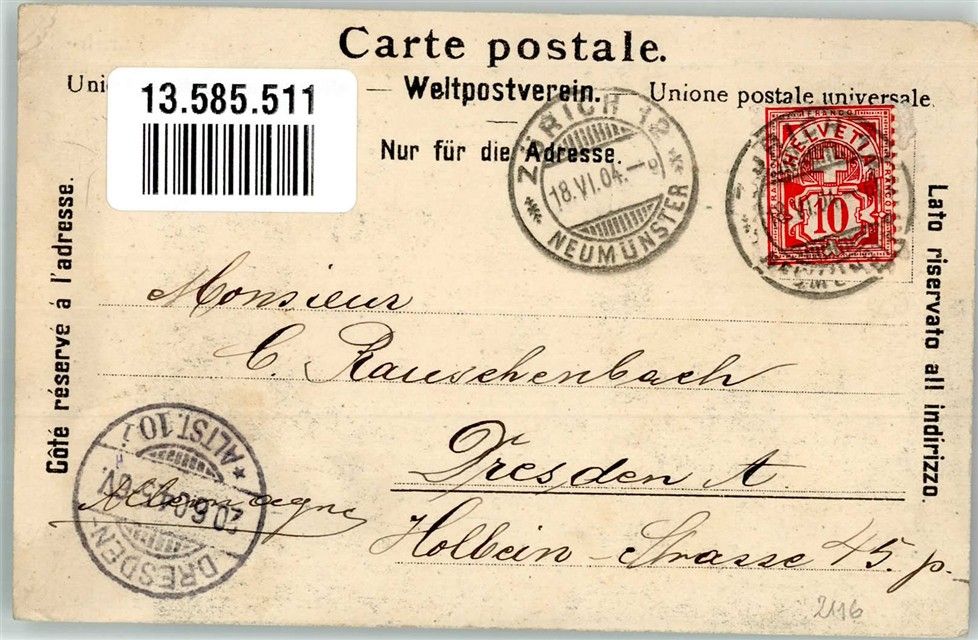 Carte postale.
Weltpostverein. — Unione postale universale.
13.585.511
Nur für die Adresse.
ZÜRICH 12
18.VI.04.
NEUMÜNSTER
FRANCO
HELVETIA
10
Côté réservé á l'adresse.
Lato riservato all indirizzo.
Monsieur
C. Rauschenbach
Dresden A.
Allemagne
Holbein-Strasse 45. p.
DRESDEN-
ALTST. 10
20.6.04.
2116